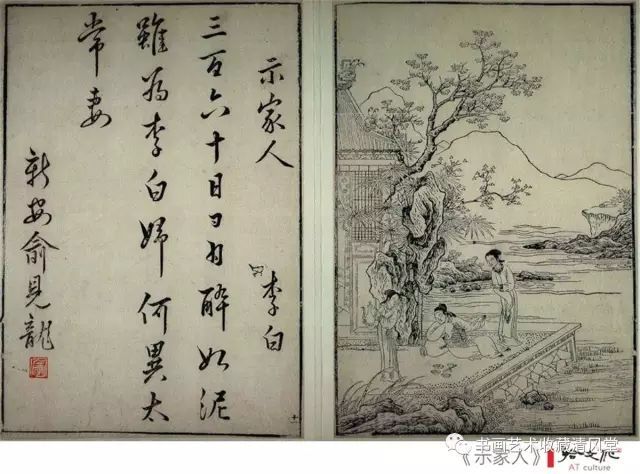 示家人 李白
三百六十日日日醉如泥
雖為李白婦何異太
常妻
新安俞見龍
十
书画艺术收藏清风堂
《示家人》
AT culture